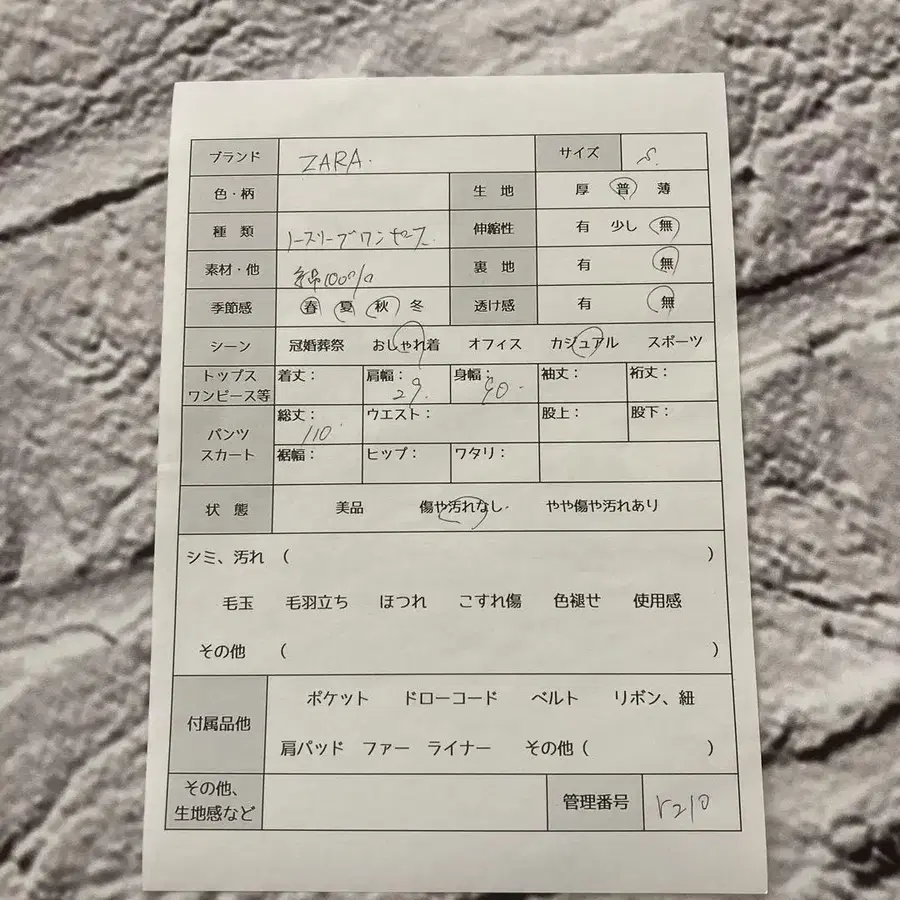 ブランド ZARA. サイズ S.
色・柄 生 地 厚 普 薄
種 類 ノースリーブワンピース. 伸縮性 有 少し 無
素材・他 綿100% 裏 地 有 無
季節感 春 夏 秋 冬 透け感 有 無
シーン 冠婚葬祭 おしゃれ着 オフィス カジュアル スポーツ
トップス ワンピース等 着丈： 肩幅： 29. 身幅： 40. 袖丈： 裄丈：
パンツ スカート 総丈： 110. ウエスト： 股上： 股下：
裾幅： ヒップ： ワタリ：
状 態 美品 傷や汚れなし. やや傷や汚れあり
シミ、汚れ （ ）
毛玉 毛羽立ち ほつれ こすれ傷 色褪せ 使用感
その他 （ ）
付属品他 ポケット ドローコード ベルト リボン、紐
肩パッド ファー ライナー その他（ ）
その他、
生地感など 管理番号 r210